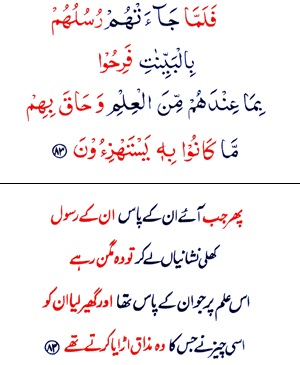 فَلَمَّا جَآءَتْهُمْ رُسُلُهُمْ
بِالْبَيِّنٰتِ فَرِحُوْا
بِمَا عِنْدَهُمْ مِّنَ الْعِلْمِ وَحَاقَ بِهِمْ
مَّا كَانُوْا بِهٖ يَسْتَهْزِءُوْنَ ﴿۸۳﴾
پھر جب آئے ان کے پاس ان کے رسول
کھلی نشانیاں لے کر تو وہ مگن رہے
اس علم پر جو ان کے پاس تھا اور گھیر لیا ان کو
اسی چیز نے جس کا وہ مذاق اڑایا کرتے تھے ﴿۸۳﴾